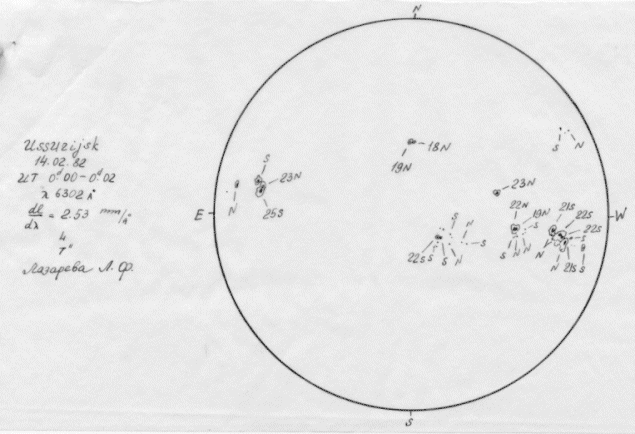 N
Ussurijsk
14.02.82
UT 0.00-0.02
λ 6302 Å
dl/dλ = 2.53 mm/Å
4
T"
Лазарева Л.Ф.
E
W
S
18N
19N
S
23N
N
25S
23N
22N
19N
21S
22S
22S
S
S
N
N
S
22S
S
S
N
S
N
N
N
N
21S
S
S
S
N